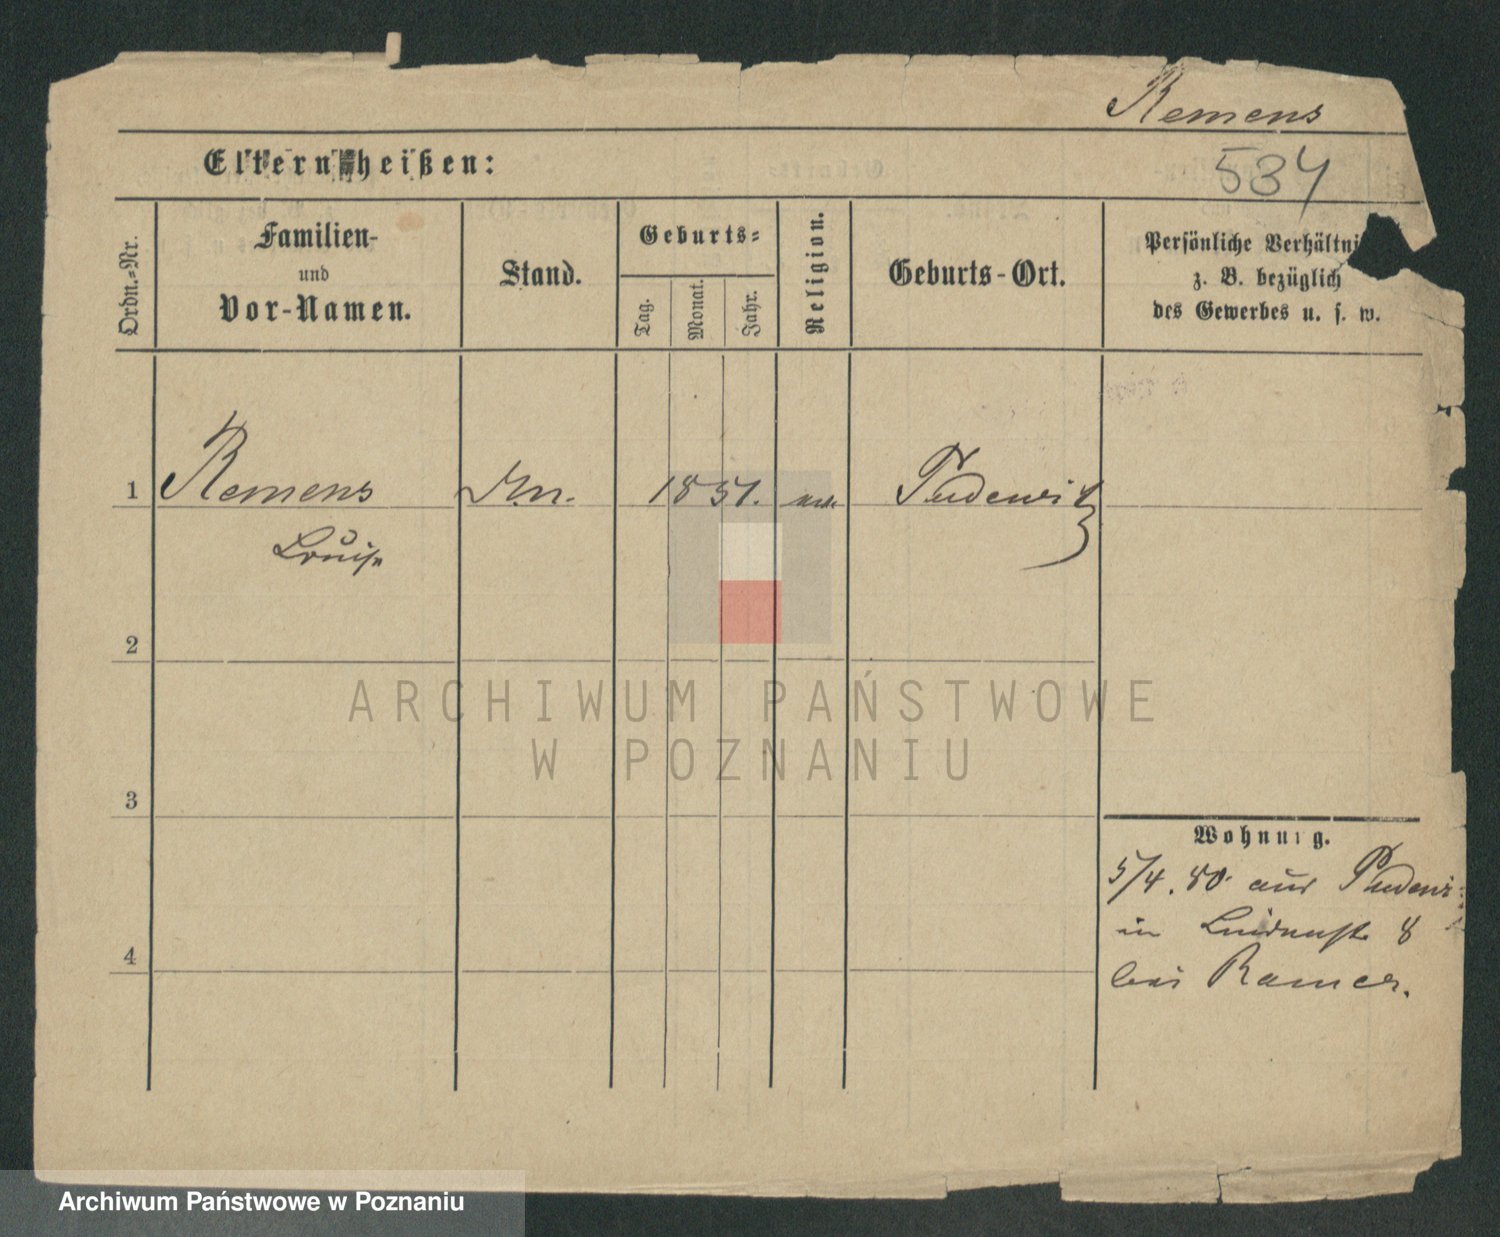 Remens
534
Eltern heißen:
Ordn.-Nr.
Familien-
und
Vor-Namen.
Stand.
Geburts-
Tag.
Monat.
Jahr.
Religion.
Geburts-Ort.
Persönliche Verhältni
z. B. bezüglich
des Gewerbes u. s. w.
1 Remens 1851. Pudewitz
Louise
2
ARCHIWUM PAŃSTWOWE
W POZNANIU
3
Wohnung.
5/4. 80. aus Pudewi
4
in 8
bei Ramer.
Archiwum Państwowe w Poznaniu